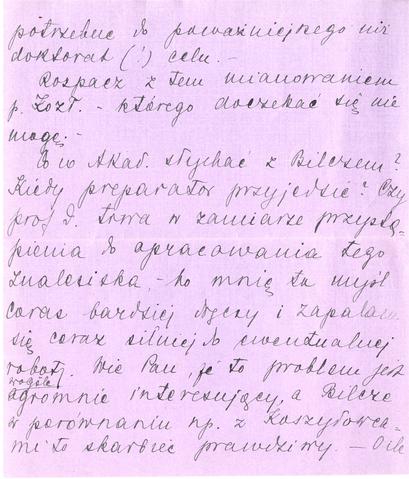 potrzebuc do poważniejszego niż
doktorat (!) celu. —
Rospacz z tem mianowaniem
p. Kozł. - którego doczekać się nie
mogę. -
Co w Akad. słychać z Bilczem?
Kiedy preparator przyjedzie? Czy
prof D. trwa w zamiarze przystą-
pienia do opracowania tego
znaleziska, - bo mnię ta myśl
coraz bardziej łączy i zapalam
się coraz silniej do ewentualnej
roboty. Wie Pan, że to problem jest
wogóle
ogromnie interesujący, a Bilcze
w porównaniu np. z Koszyłowca-
mi to skarbiec prawdziwy. — O ile